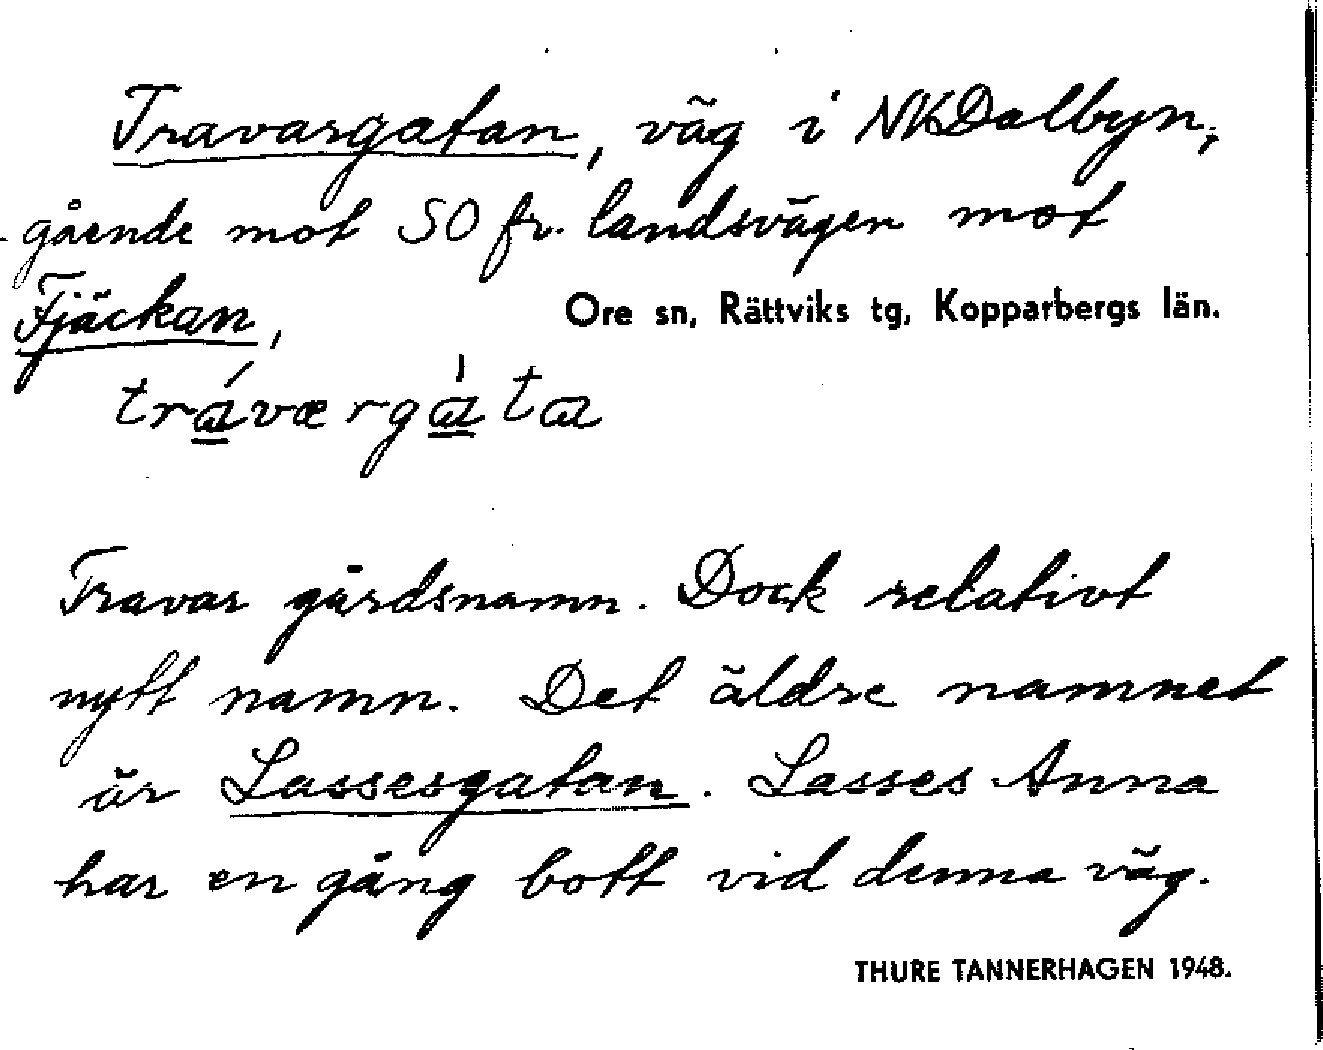 Travargatan, väg i NKDalbyn,
gående mot SO fr. landsvägen mot
Fjäckan,
Ore sn, Rättviks tg, Kopparbergs län.
tráværgàta
Travar gårdsnamn. Dock relativt
nytt namn. Det äldre namnet
är Lassesgatan. Lasses Anna
har en gång bott vid denna väg.
THURE TANNERHAGEN 1948.